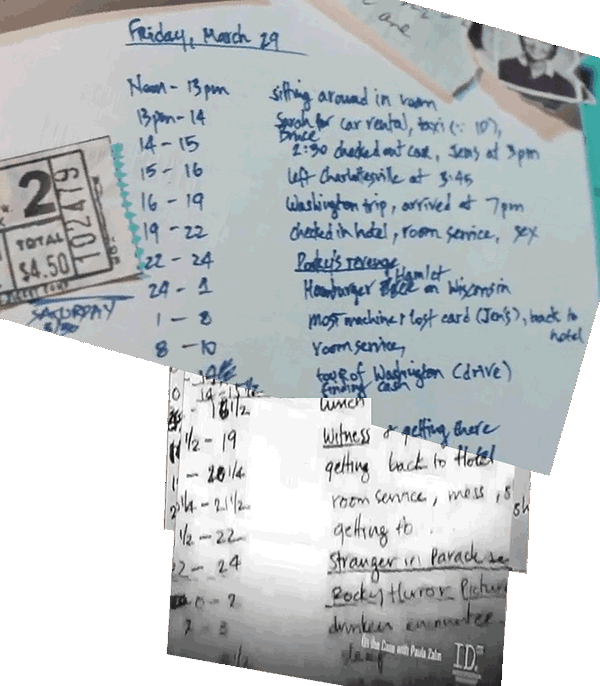 are
Friday, March 29
Noon - 13pm sitting around in room
13pm - 14 Sarah for car rental, taxi (: 10),
Bruce
14 - 15 2:30 checked out car, Jens at 3pm
15 - 16 left Charlottesville at 3:45
16 - 19 Washington trip, arrived at 7pm
19 - 22 checked in hotel, room service, sex
22 - 24 Porky's revenge
24 - 1 Hamburger Hamlet on Wisconsin
SATURDAY
1 - 8 most machines lost card (Jen's), back to hotel
8 - 10 room service,
tour of Washington (drive)
finding cash
lunch
1/2 - 19 Witness & getting there
- 20 1/4 getting back to Hotel
1/4 - 21 1/2 room service, mess,
1/2 - 22 getting to
22 - 24 Stranger in Parad
0 - 2 Rocky Horror Pictur
2 - 3 drunken encounter
2
TOTAL
$4.50
102479
On the Case with Paula Zahn
ID